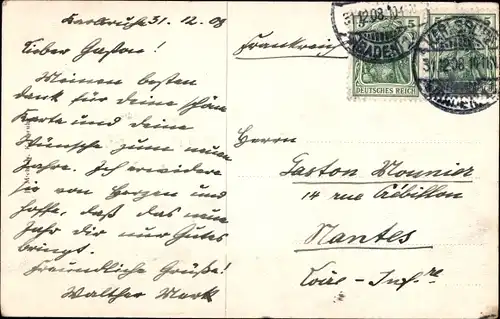 Karlsruhe 31. 12. 08
Lieber Gaston!
Meinen besten
dank für deine schöne
Karte und deine
Wünsche zum neuen
Jahre. Ich erwidere
sie von Herzen und
hoffe, daß das neue
Jahr dir nur Gutes
bringt.
Freundliche Grüße!
Walther
Frankreich
Herrn
Gaston Mounier
14 rue Crébillon
Nantes
Loire-Infre
5
5
DEUTSCHES REICH